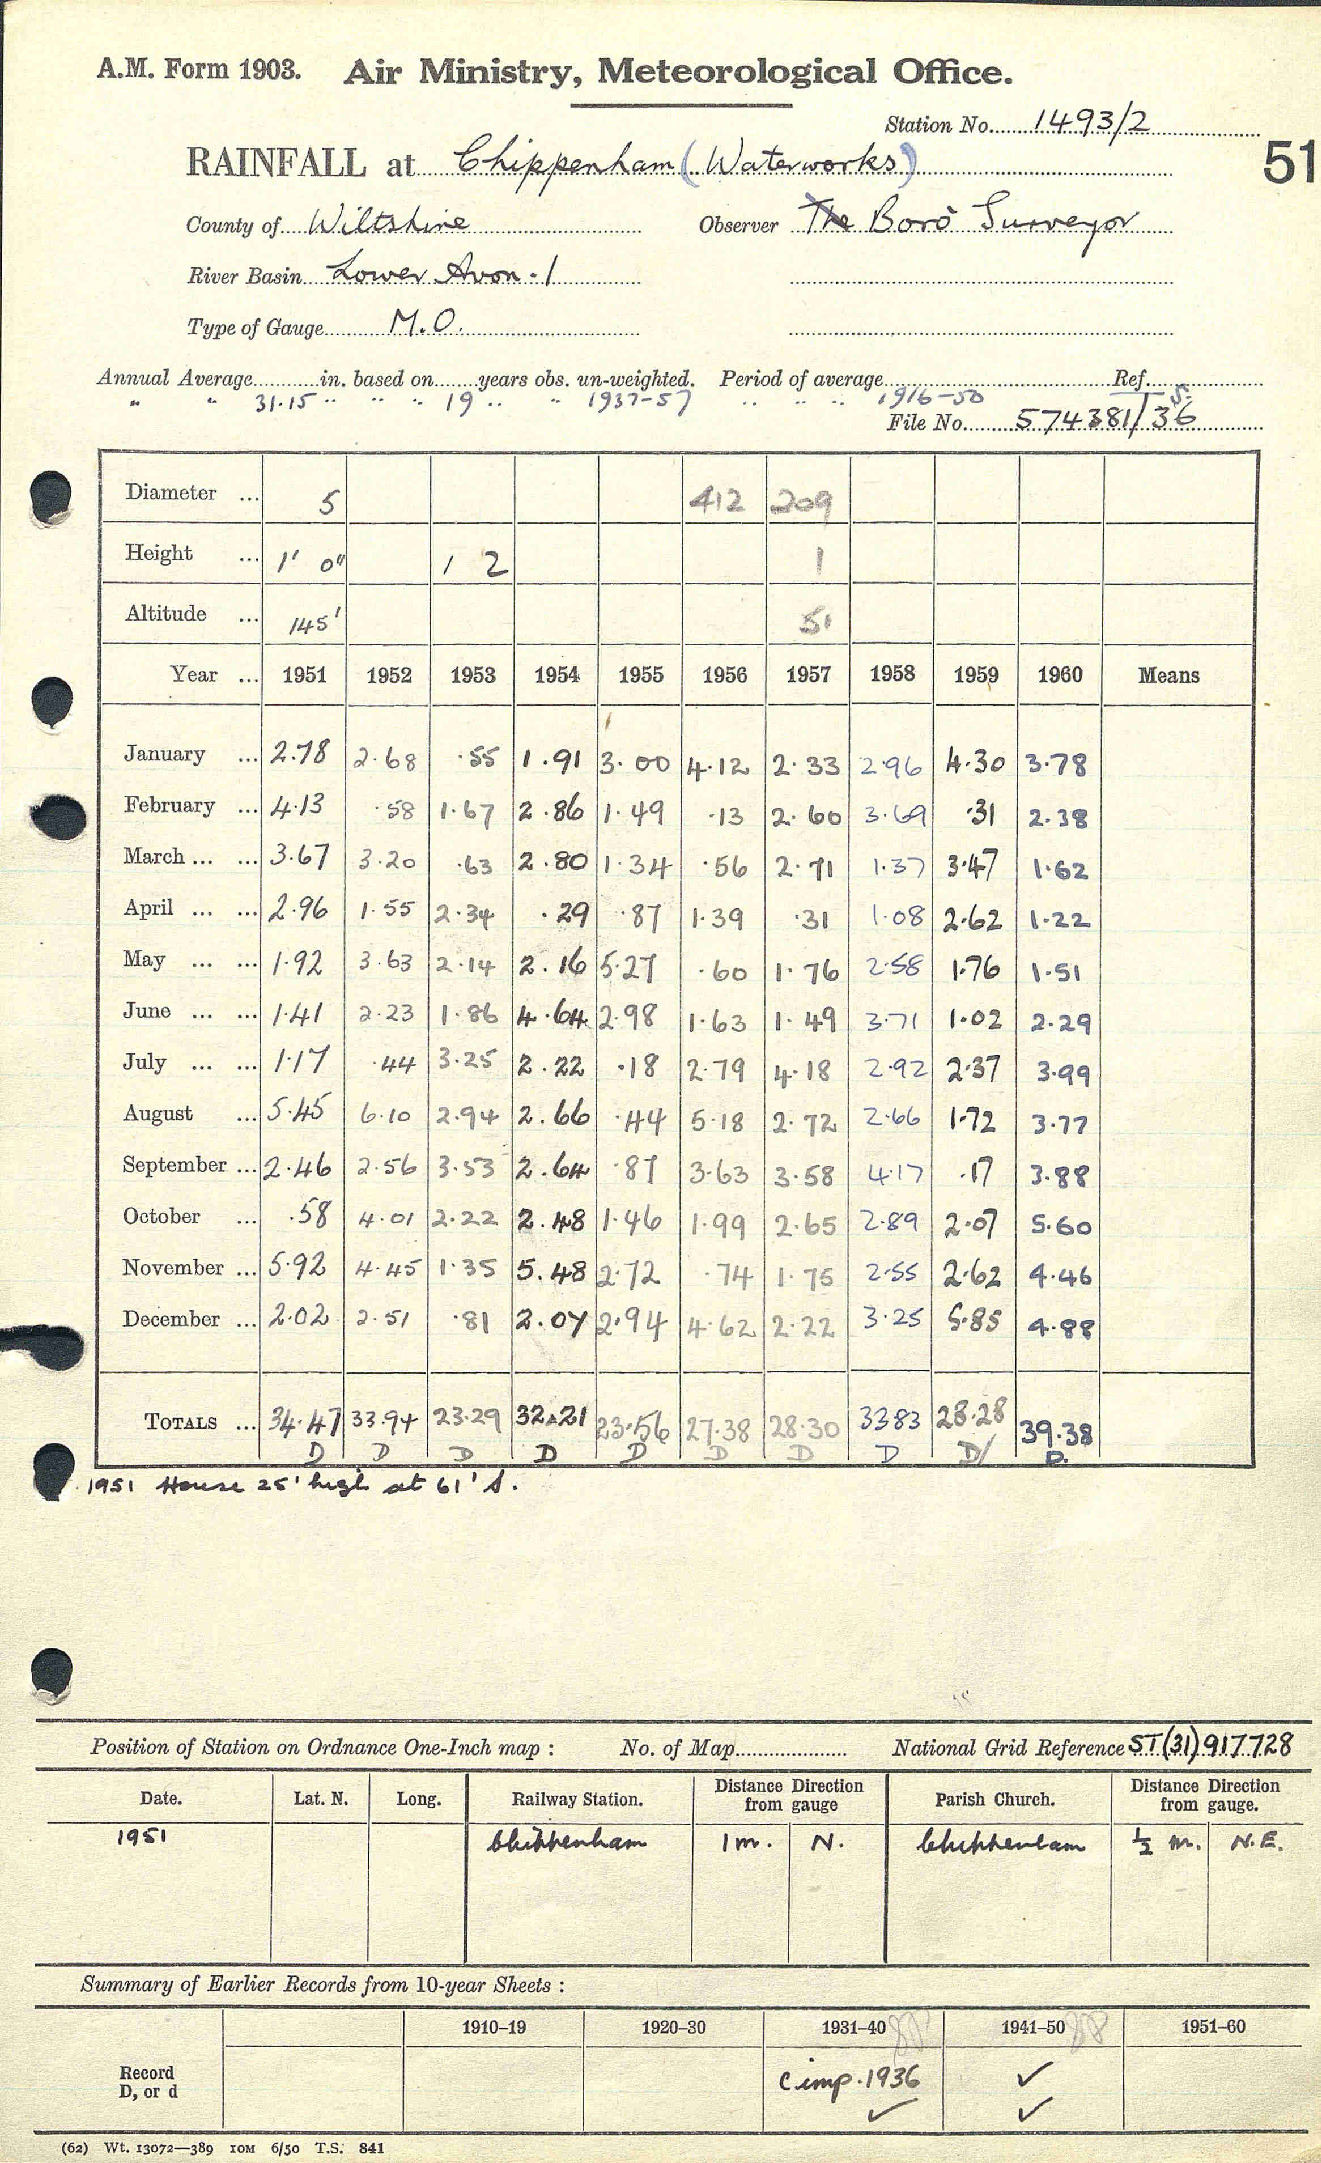 A.M. Form 1903. Air Ministry, Meteorological Office.
Station No. 1493/2
RAINFALL at Chippenham (Waterworks)
51
County of Wiltshire Observer The Boro' Surveyor
River Basin Lower Avon - 1
Type of Gauge M.O.
Annual Average in. based on years obs. un-weighted. Period of average Ref.
" " 31.15 " " " 19 " " 1937-57 " " " 1916-50 S.
File No. 574381/36
Diameter ... 5 412 209
Height ... 1' 0" 1 2 1
Altitude ... 145' 51
Year ... 1951 1952 1953 1954 1955 1956 1957 1958 1959 1960 Means
January ... 2.78 2.68 .55 1.91 3.00 4.12 2.33 2.96 4.30 3.78
February ... 4.13 .58 1.67 2.86 1.49 .13 2.60 3.69 .31 2.38
March ... ... 3.67 3.20 .63 2.80 1.34 .56 2.71 1.37 3.47 1.62
April ... ... 2.96 1.55 2.34 .29 .87 1.39 .31 1.08 2.62 1.22
May ... ... 1.92 3.63 2.14 2.16 5.27 .60 1.76 2.58 1.76 1.51
June ... ... 1.41 2.23 1.86 4.64 2.98 1.63 1.49 3.71 1.02 2.29
July ... ... 1.17 .44 3.25 2.22 .18 2.79 4.18 2.92 2.37 3.99
August ... 5.45 6.10 2.94 2.66 .44 5.18 2.72 2.66 1.72 3.77
September ... 2.46 2.56 3.53 2.64 .87 3.63 3.58 4.17 .17 3.88
October ... .58 4.01 2.22 2.48 1.46 1.99 2.65 2.89 2.07 5.60
November ... 5.92 4.45 1.35 5.48 2.72 .74 1.75 2.55 2.62 4.46
December ... 2.02 2.51 .81 2.07 2.94 4.62 2.22 3.25 5.85 4.88
TOTALS ... 34.47 33.94 23.29 32.21 23.56 27.38 28.30 33.83 28.28 39.38
D D D D D D D D D/ D.
1951 House 25' high at 61' S.
Position of Station on Ordnance One-Inch map : No. of Map National Grid Reference ST(31)917728
Date. Lat. N. Long. Railway Station. Distance from gauge Direction Parish Church. Distance Direction from gauge.
1951 Chippenham 1 m. N. Chippenham ½ m. N.E.
Summary of Earlier Records from 10-year Sheets :
1910-19 1920-30 1931-40 1941-50 1951-60
Record D, or d C imp. 1936 ✓
✓ ✓
(62) Wt. 13072—389 10M 6/50 T.S. 841